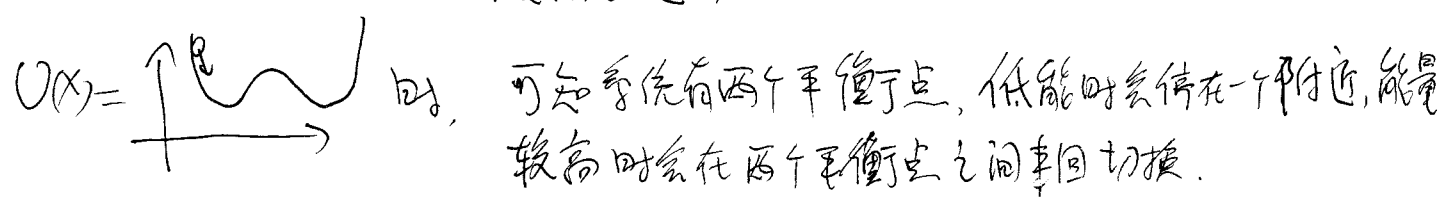 U(x)= 时, 可知系统有两个平衡点, 低能时会停在一个附近, 能量
较高时会在两个平衡点之间来回切换.